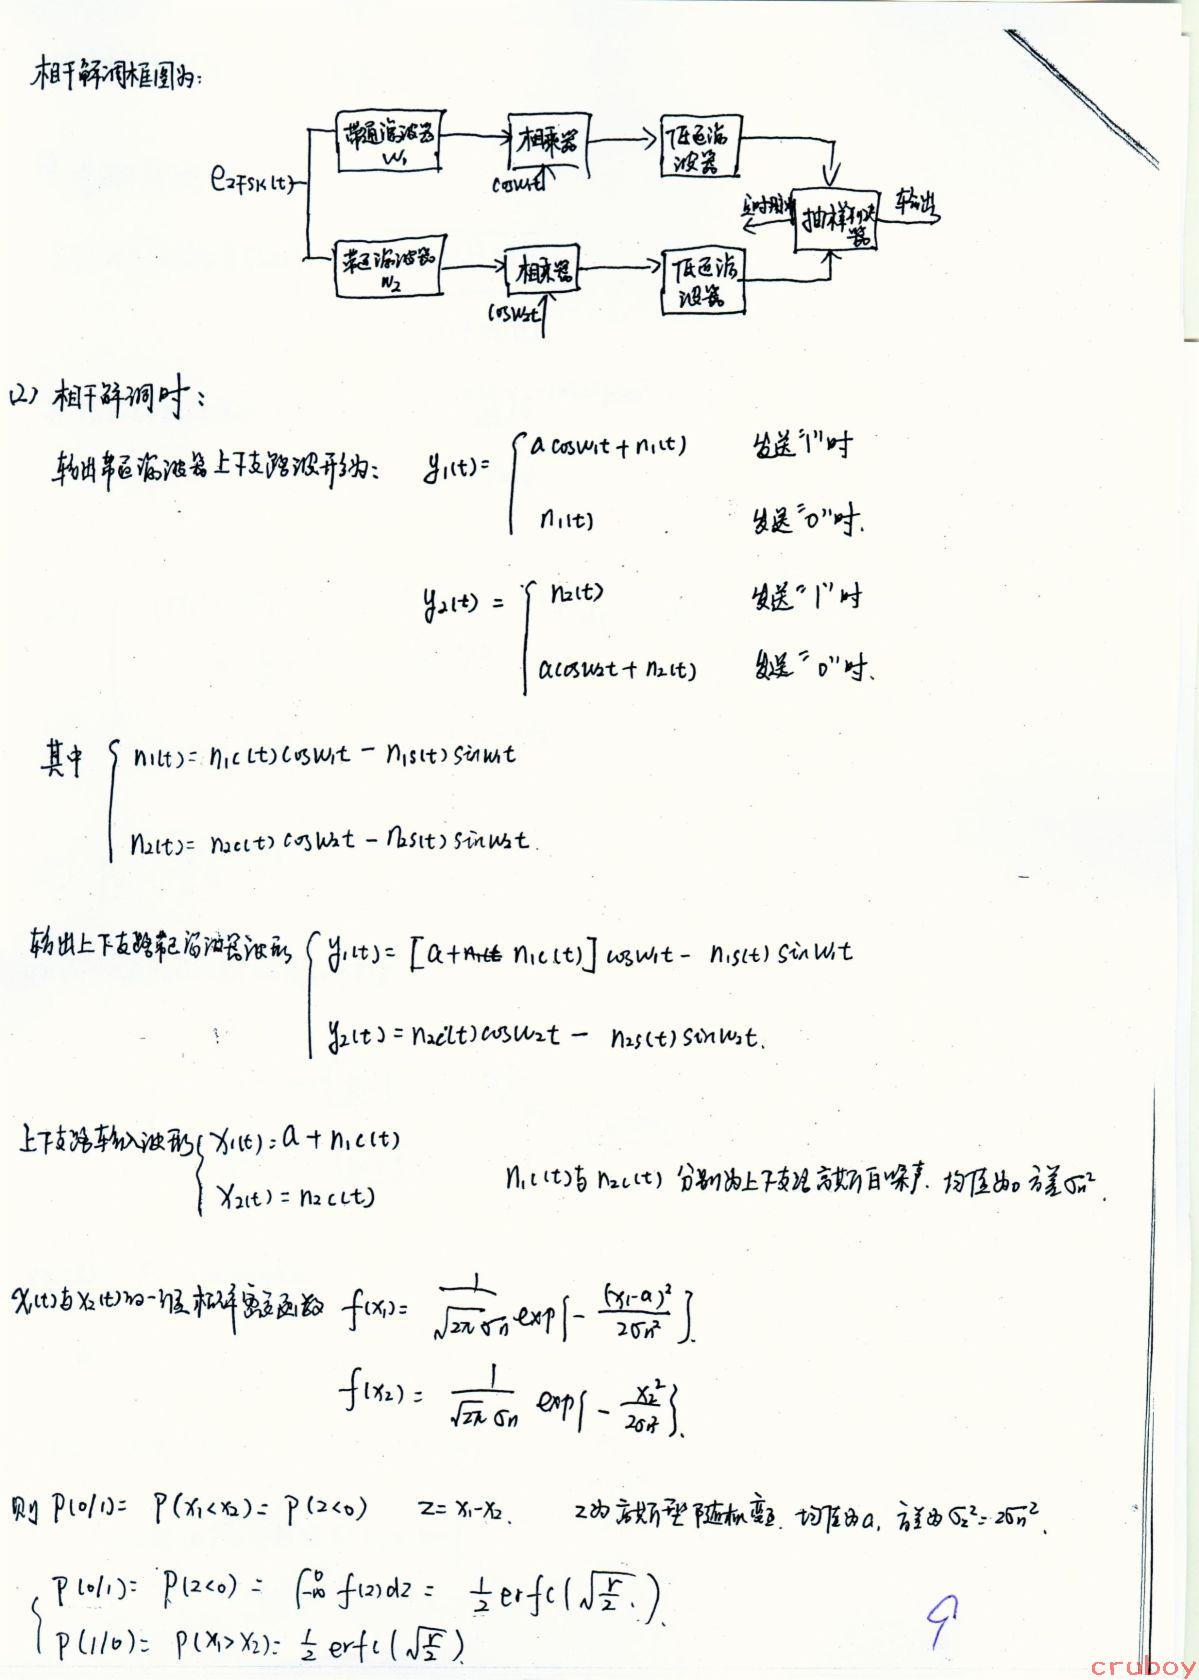 相干解调框图为:
带通滤波器 W₁
相乘器
低通滤波器
cosw₁t
e₂FSK(t)
定时脉冲
抽样判决器
输出
带通滤波器 W₂
相乘器
低通滤波器
cosw₂t
(2) 相干解调时:
输出带通滤波器上下支路波形为: y₁(t)= { acosw₁t + n₁(t) 发送"1"时
n₁(t) 发送"0"时.
y₂(t) = { n₂(t) 发送"1"时
acosw₂t + n₂(t) 发送"0"时.
其中 { n₁(t)= n₁c(t)cosw₁t - n₁s(t)sinw₁t
n₂(t)= n₂c(t)cosw₂t - n₂s(t)sinw₂t.
输出上下支路带通滤波器波形 { y₁(t)= [a+n₁c(t)]cosw₁t - n₁s(t)sinw₁t
y₂(t)= n₂c(t)cosw₂t - n₂s(t)sinw₂t.
上下支路输入波形 { x₁(t)= a + n₁c(t)
x₂(t)= n₂c(t)
n₁c(t)与n₂c(t) 分别为上下支路高斯白噪声. 均值为0 方差σn².
x₁(t)与x₂(t)的一维概率密度函数 f(x₁)= 1/(√2π σn) exp{ - (x₁-a)²/2σn² }.
f(x₂)= 1/(√2π σn) exp{ - x₂²/2σn² }.
则 P(0/1)= P(x₁<x₂)= P(z<0) z= x₁-x₂. z为高斯型随机变量. 均值为a, 方差为σz²=2σn².
{ P(0/1)= P(z<0) = ∫₋∞⁰ f(z)dz = ½ erfc(√(r/2)).
P(1/0)= P(x₁>x₂)= ½ erfc(√(r/2)).
9
cruboy